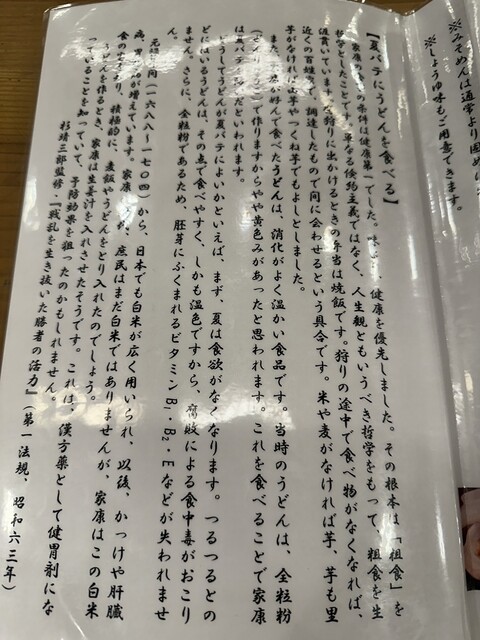 みそめんは通常より固め
※しょうゆ味もご用意できます。
【夏バテにうどんを食べる】
家康の の条件は健康第一でした。味 、健康を優先しました。その根本は「粗食」を
哲学としたことです。単なる倹約主義ではなく、人生観ともいうべき哲学をもって、粗食を生
涯貫いています。狩りに出かけるときの弁当は焼飯です。狩りの途中で食べ物がなくなれば、
近くの百姓 で、調達したもので間に合わせるという具合です。米や麦がなければ芋、芋も里
芋がなければ山芋やつくね芋でもよしとしました。
また、 が好んで食べたうどんは、消化がよく温かい食品です。当時のうどんは、全粒粉
で作りますからやや黄色みがあったと思われます。これを食べることで家康
は夏バテ だといわれます。
どにはいるうどんは、その点で食べやすく、しかも温色ですから、腐敗による食中毒がおこり
どうしてうどんが夏バテによいかといえば、まず、夏は食欲がなくなります。つるつるとの
ません。さらに、全粒粉であるため、胚芽にふくまれるビタミンB₁・B₂・Eなどが失われませ
ん。
元禄 間(一六八八~一七〇四)から、日本でも白米が広く用いられ、以後、かっけや肝臓
病、 が増えています。家康 、庶民はまだ白米ではありませんが、家康はこの白米
食の り、積極的に、麦飯やうどんをとり入れたのでしょう。
うどんを作るとき、家康は生姜汁を入れさせたそうです。これは、漢方薬として健胃剤にな
っていることを知っていて、予防効果を狙ったのかもしれません。
杉靖三郎監修『戦乱を生き抜いた勝者の活力』(第一法規、昭和六三年)